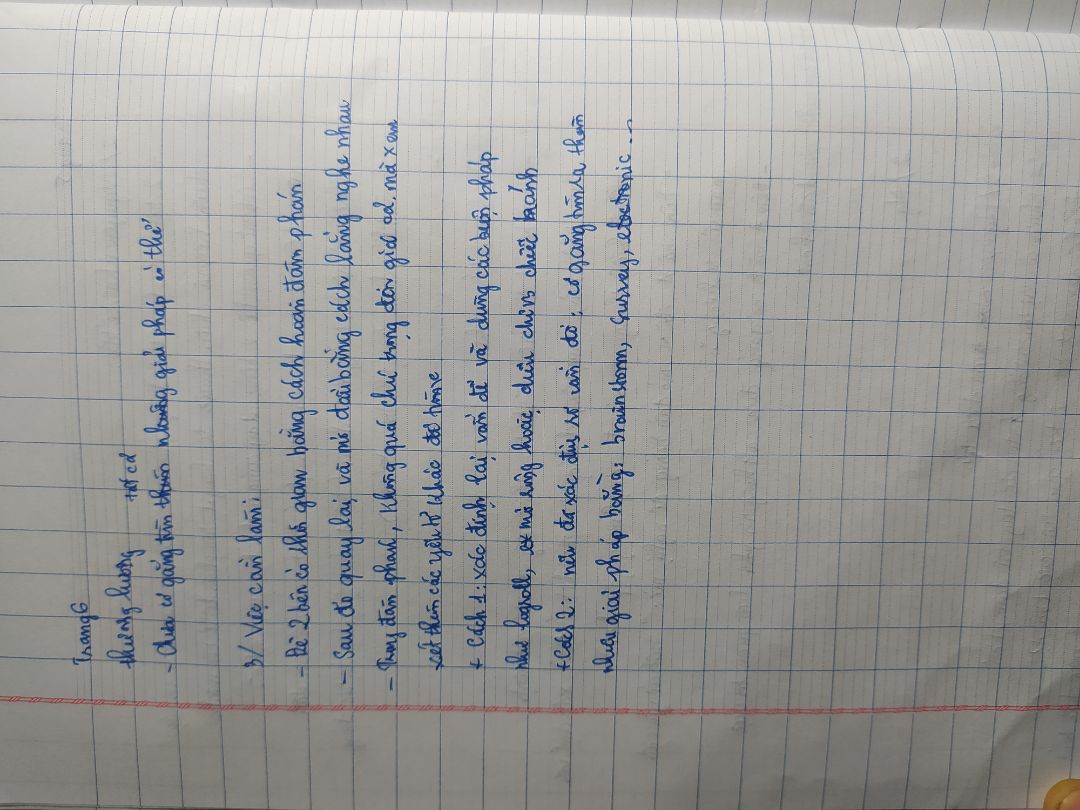 Trang 6
thương lượng
tất cả
- Chưa cố gắng tìm thêm những giải pháp có thể
3/ Việc cần làm:
- Để 2 bên có thời gian bằng cách hoãn đàm phán
- Sau đó quay lại và mở đầu bằng cách lắng nghe nhau
- Trong đàm phán, không quá chú trọng đến giá cả, mà xem
xét thêm các yếu tố khác
+ Cách 1: xác định lại vấn đề và dùng các biện pháp
như logroll, mở rộng hoặc điều chỉnh chiếc bánh
+ Cách 2: nếu đã xác định rõ vấn đề; cố gắng tìm ra thêm
nhiều giải pháp bằng: brainstorm, survey, electronic ...